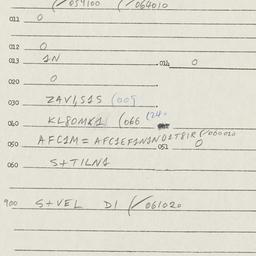 (✓059100 (✓064010
011 0
012 0
013 1N 014 0
020 0
030 ZAV1,S1S (009
040 KL80MK1 (066 (24
050 AFC1M=AFC1EF1N1N01T8IR(✓060020
051 0
060 S+TILN1
900 S+VEL D1 (✓061020